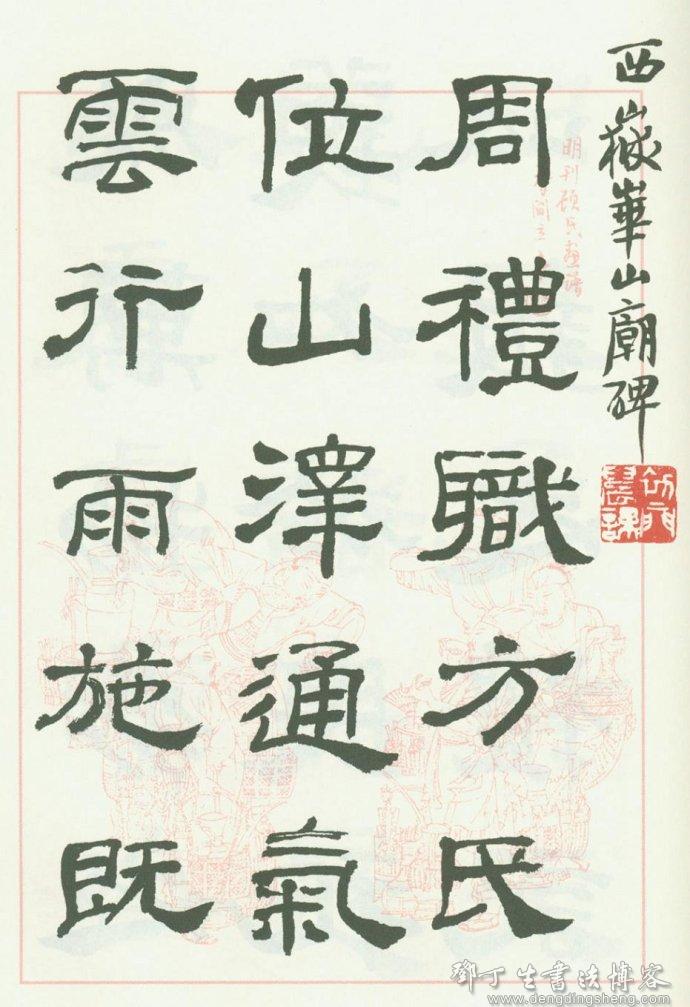 西嶽華山廟碑
周禮職方氏
位山澤通氣
雲行雨施既
明刊顾氏画谱
鄧丁生書法博客
www.dengdingsheng.com